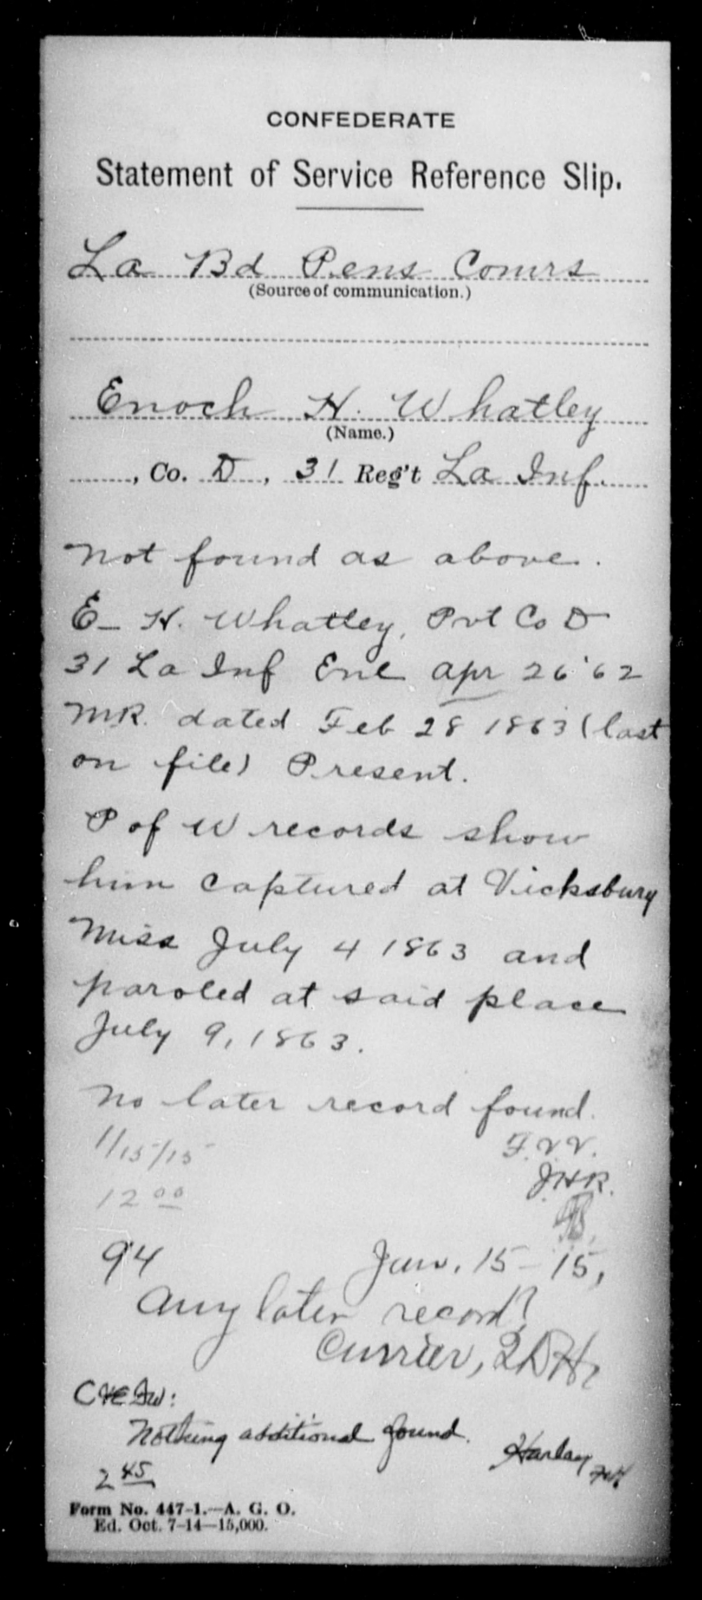 CONFEDERATE
Statement of Service Reference Slip.
La Bd Pens Comrs
(Source of communication.)
Enoch H. Whatley
(Name.)
, Co. D, 31 Reg't La Inf.
Not found as above.
E- H. Whatley, Pvt Co D
31 La Inf Enl Apr 26 '62
MR. dated Feb 28 1863 (last
on file) Present.
P of W records show
him captured at Vicksburg
Miss July 4 1863 and
paroled at said place
July 9, 1863.
No later record found.
1/15/15
F.V.V.
J.H.R.
12 00
94
Jan. 15-15,
Any later record?
Currier,
Nothing additional found.
Harlan
2 45
Form No. 447-1.—A. G. O.
Ed. Oct. 7-14—15,000.